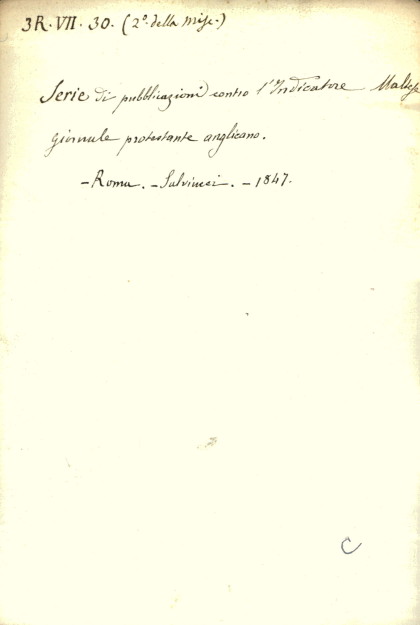 3R. VII. 30. (2º della Misc.)
Serie di pubblicazioni contro l'Indicatore Maltese
giornale protestante anglicano.
- Roma. - Salviucci. - 1847.
C